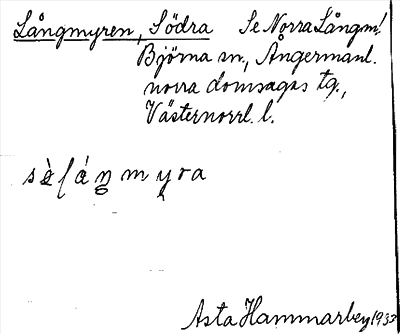 Långmyren, Södra Se Norra Långm!
Björna sn., Ångermanl.
norra domsagas tg.,
Västernorrl. l.
Asta Hammarberg 1933